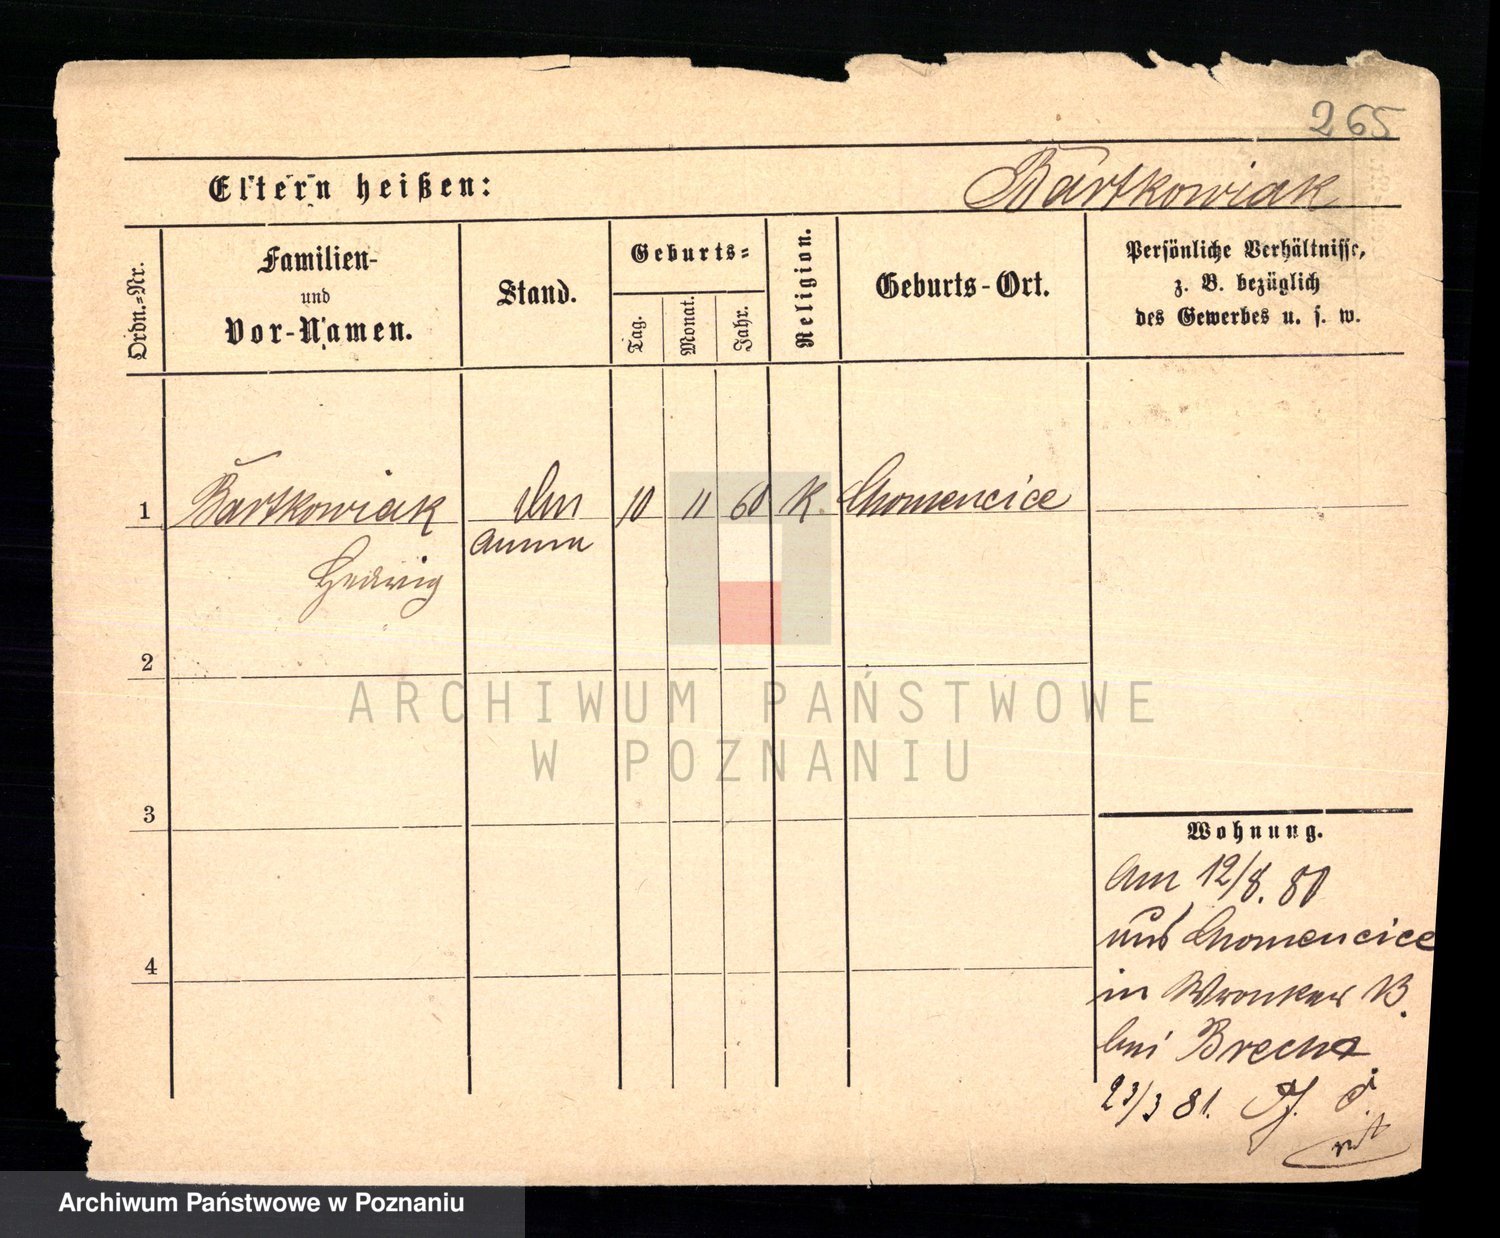 265
Eltern heißen: Bartkowiak
Ordn.-Nr.
Familien-
und
Vor-Namen.
Stand.
Geburts-
Tag.
Monat.
Jahr.
Religion.
Geburts-Ort.
Persönliche Verhältnisse,
z. B. bezüglich
des Gewerbes u. s. w.
1 Bartkowiak 10 11 60 K. Chomencice
Amme
Hedwig
2
3
4
ARCHIWUM PAŃSTWOWE
W POZNANIU
Wohnung.
Am 12/8. 80
aus Chomencice
in Wronker
bei Brecht
23/3 81.
Archiwum Państwowe w Poznaniu